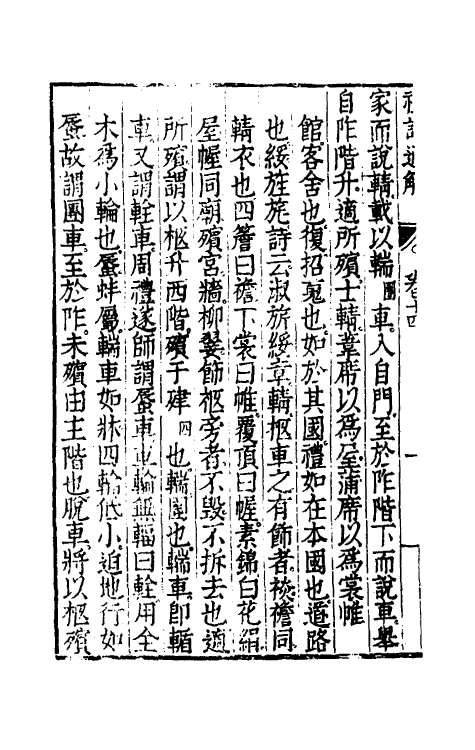 禮記通解 卷十四 一
家而說輤載以輲團車入自門至於阼階下而說車舉
自阼階升適所殯士輤葦席以爲屋蒲席以爲裳帷
館客舍也復招䰟也如於其國禮如在本國也道路
也綏旌旄詩云淑旂綏章輤柩車之有飾者裧襜同
輤衣也四簷曰襜下裳曰帷覆頂曰幄素錦白花絹
屋幄同廟殯宮牆柳翣飾柩旁者不毀不拆去也適
所殯謂以柩升西階殯于肂四也輲團也輲車卽輴
車又謂輇車周禮遂師謂蜃車車輪無輻曰輇用全
木爲小輪也蜃蚌屬輲車如牀四輪低小迫地行如
蜃故謂團車至於阼未殯由主階也脫車將以柩殯